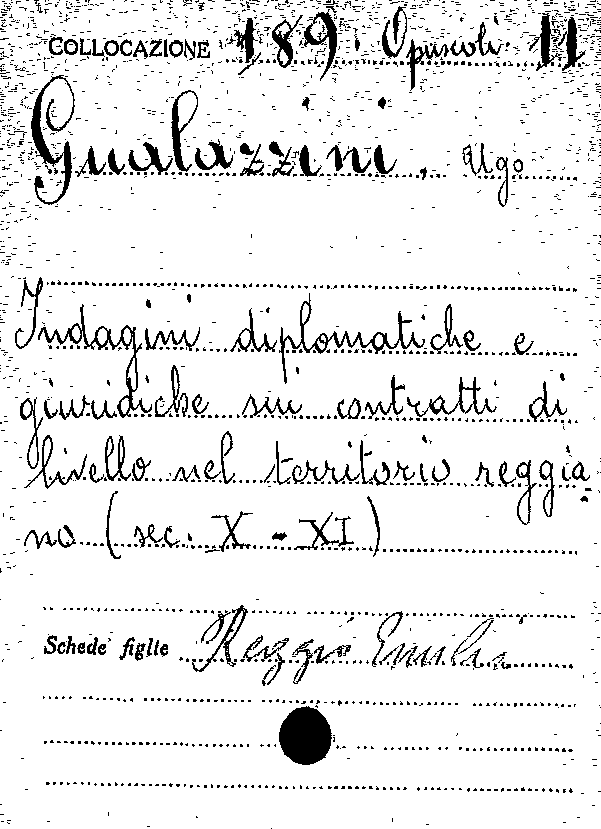 COLLOCAZIONE 189. Opuscoli 11
Gualazzini, Ugo
Indagini diplomatiche e
giuridiche sui contratti di
livello nel territorio reggia-
no (sec. X - XI)
Schede figlie Reggio Emilia